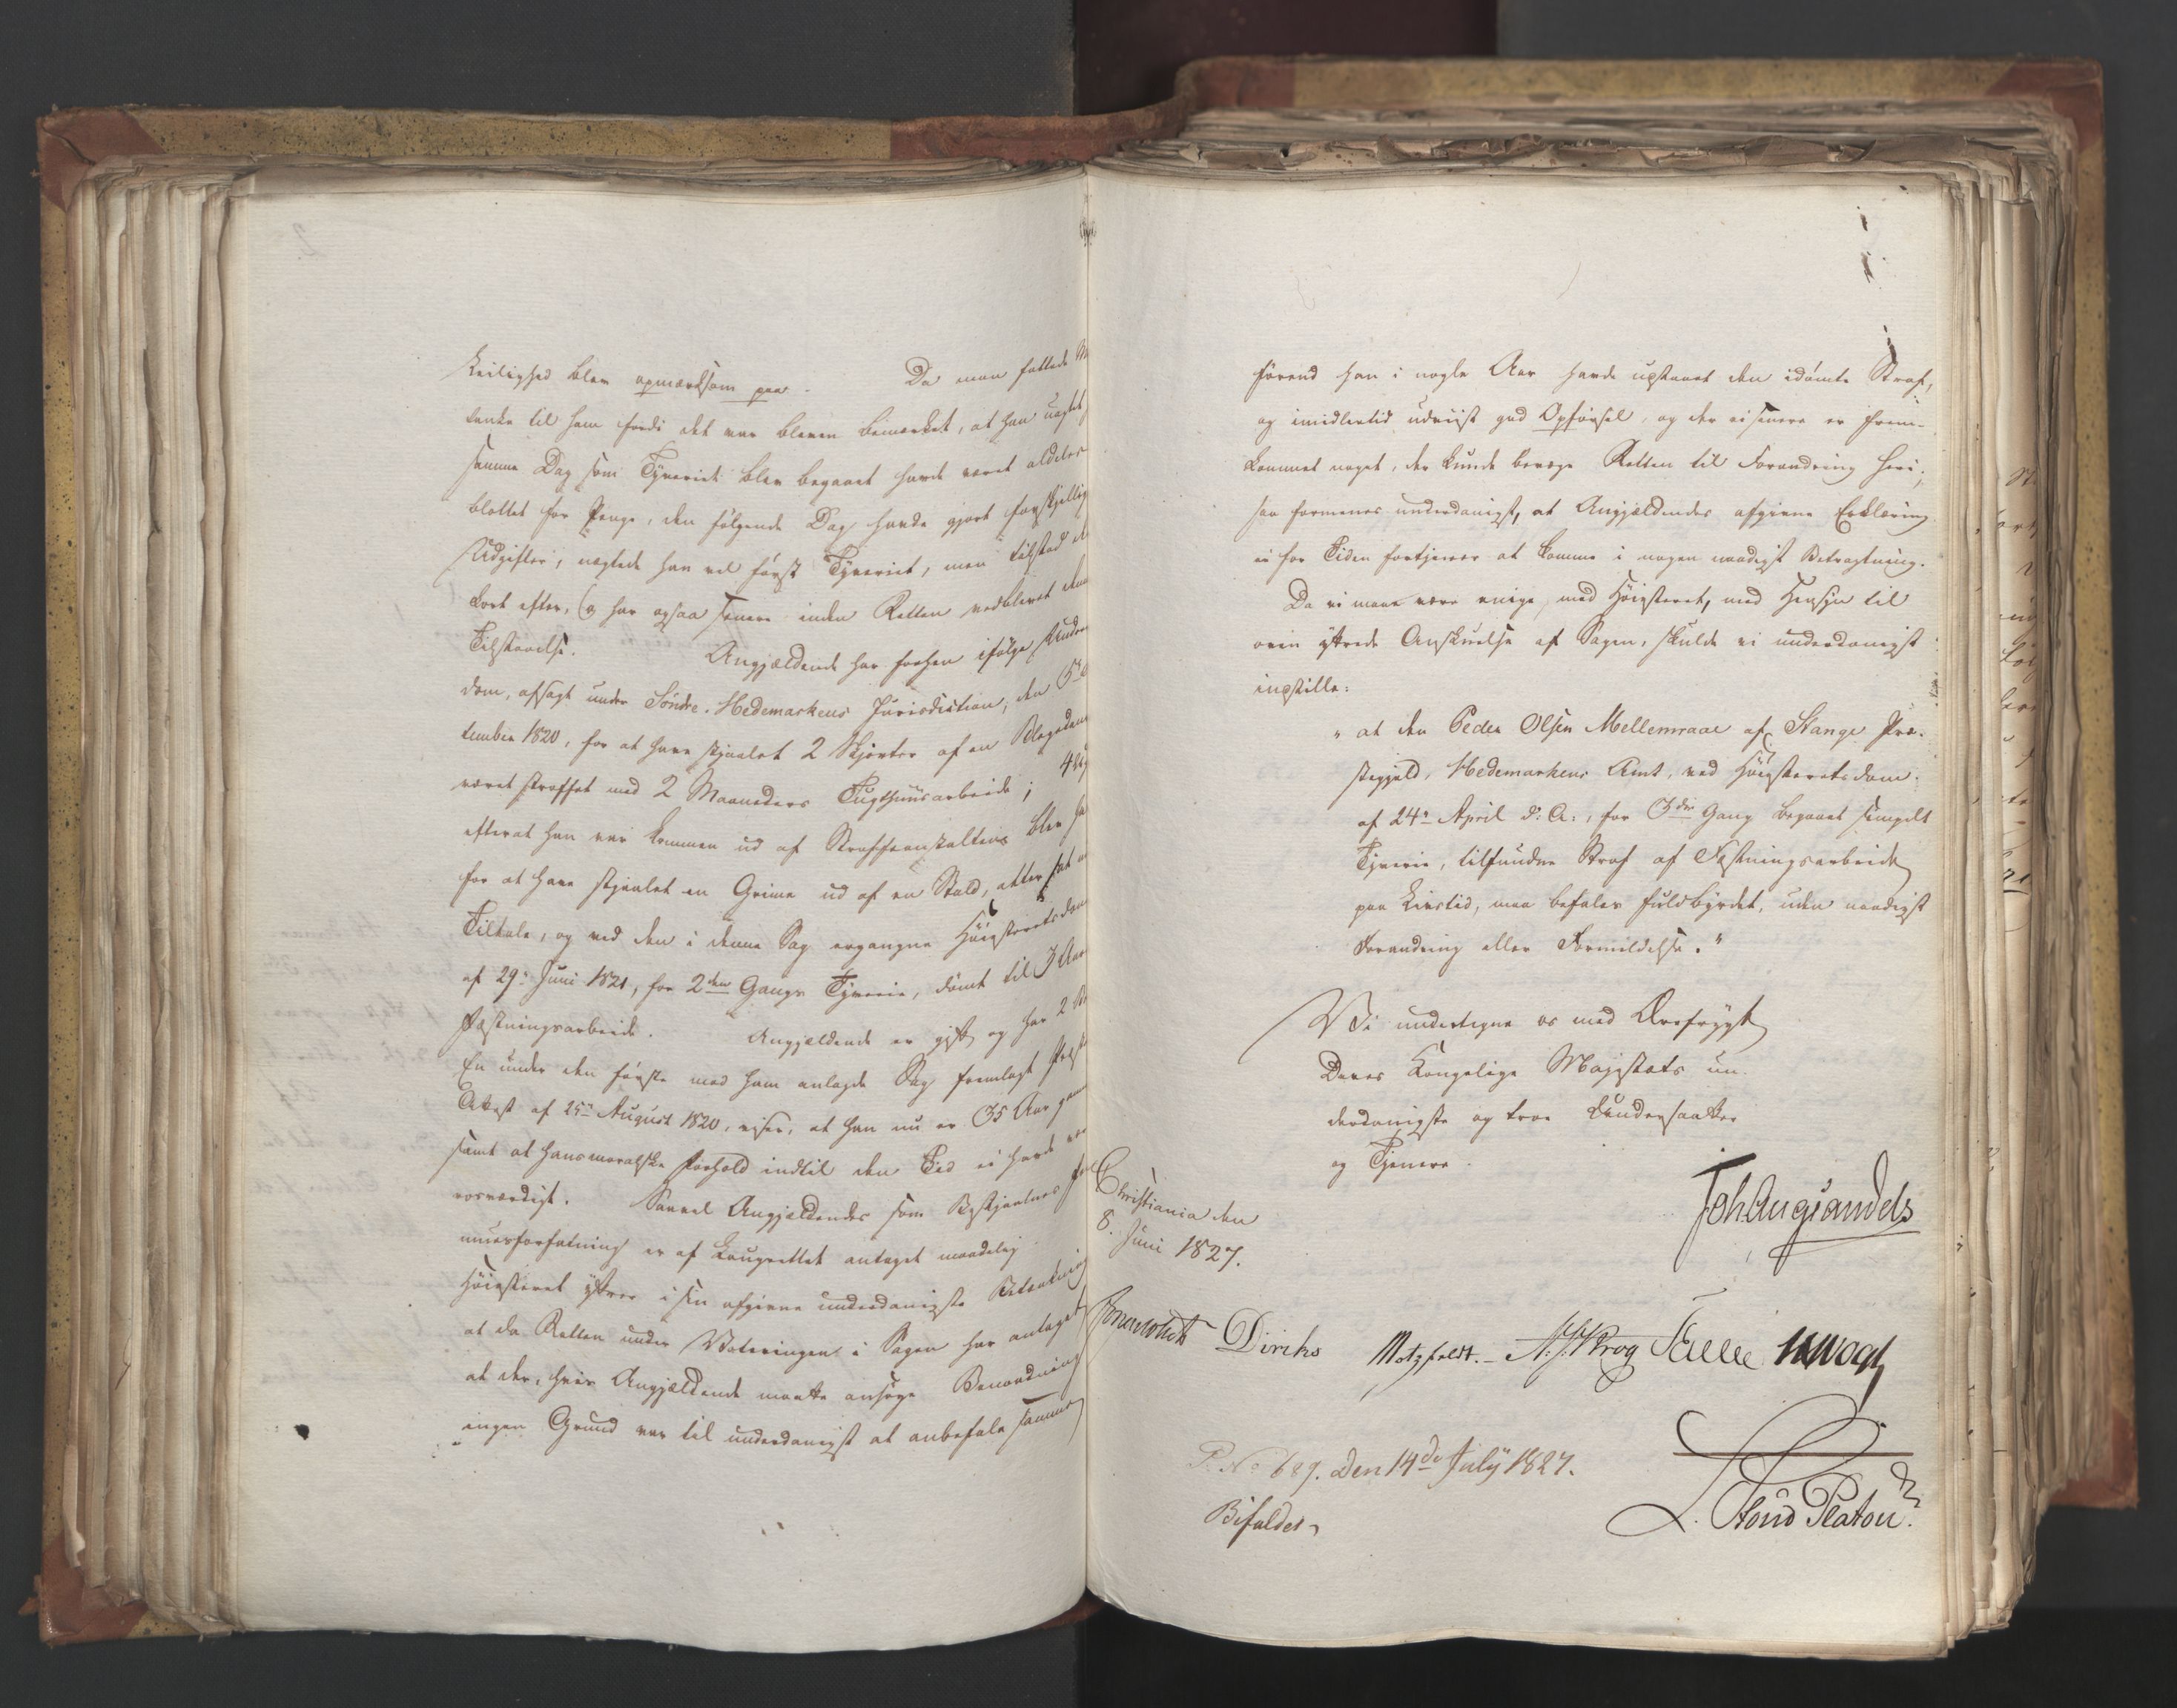 Leilighed blev opmærksom paa. Da man fattede M
tanke til ham fordi det var bleven bemærket, at han uagtet
samme Dag som Tyveriet blev begaaet havde været aldeles
blottet for Penge, den følgende Dag havde gjort forskjellige
Udgifter, negtede han vel først Tyveriet, men tilstod d
kort efter, og har ogsaa senere inden Retten vedblevet denne
Tilstaaelse. Angjældende har forhen ifølge Under
dom, afsagt under Söndre-Hedemarkens Jurisdiction, den
tember 1820, for at have stjaalet 2 Skjorter af en Blegedam
været straffet med 2 Maaneders Tugthuusarbeide; 4 Ug
efterat han var kommen ud af Straffeanstalten blev ha
for at have stjaalet en Grime ud af en Stald, atter sat u
Tiltale, og ved den i denne Sag ergangne Høiesteretsdom
af 29 Juni 1821, for 2den Gangs Tyverie, dømt til 3 Aars
Fæstningsarbeide. Angjældende er gift og har 2 B
En under den første mod ham anlagde Sag fremlagt Præste
Attest af 25 August 1820, viser, at han nu er 35 Aar gam
samt at hans moralske Forhold indtil den Tid ei havde vær
rosværdigt. Saavel Angjældendes som Bestjaalnes For
muesforfatning er af Laugrettet antaget maadelig
Høiesteret yttrer i sin afgivne underdanigste Betænkning
at da Retten under Voteringen i Sagen har antaget
at der, hvis Angjældende maatte ansøge Benaadning
ingen Grund var til underdanigst at anbefale samme
førend han i nogle Aar havde udstaaet den idømte Straf,
og imidlertid udviist god Opførsel, og der ei senere er frem-
kommet noget, der kunde bevæge Retten til Forandring heri,
saa formenes underdanigst, at Angjældendes afgivne Erklæring
ei for Tiden fortjener at komme i nogen naadigst Betragtning.
Da vi maae være enige, med Høiesteret, med Hensyn til
oven yttrede Anskuelse af Sagen, skulde vi underdanigst
indstille:
"at den Peder Olsen Mellemraae af Stange Præ-
stegjeld, Hedemarkens Amt, ved Høiesteretsdom
af 24 April d: A:, for 3die Gang begaaet simpelt
Tyverie, tilfundne Straf af Fæstningsarbeide
paa Livstid, maa befales fuldbyrdet, uden naadigst
Forandring eller Formildelse."
Vi undertegne os med Ærefrygt
Deres Kongelige Majestæts un-
derdanigste og troe Undersaatter
og Tjenere.
Christiania den
8. Juni 1827.
Joh Aug Sandels
Diriks Motzfeldt. A. J. Krog
P. No 689. den 14de July 1827.
Bifaldes
L. Stoud Platou